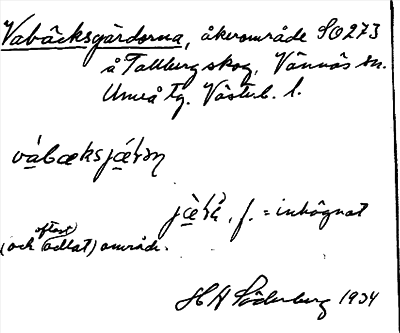 Vabäcksgärdorna, åkerområde SO 273
å Tallberg skog, Vännäs sn.
Umeå tg. Västerb. l.
vábæksjǽrən
jæ̀rå, f. = inhägnat
(och oftast odlat) område.
H A Söderberg 1934